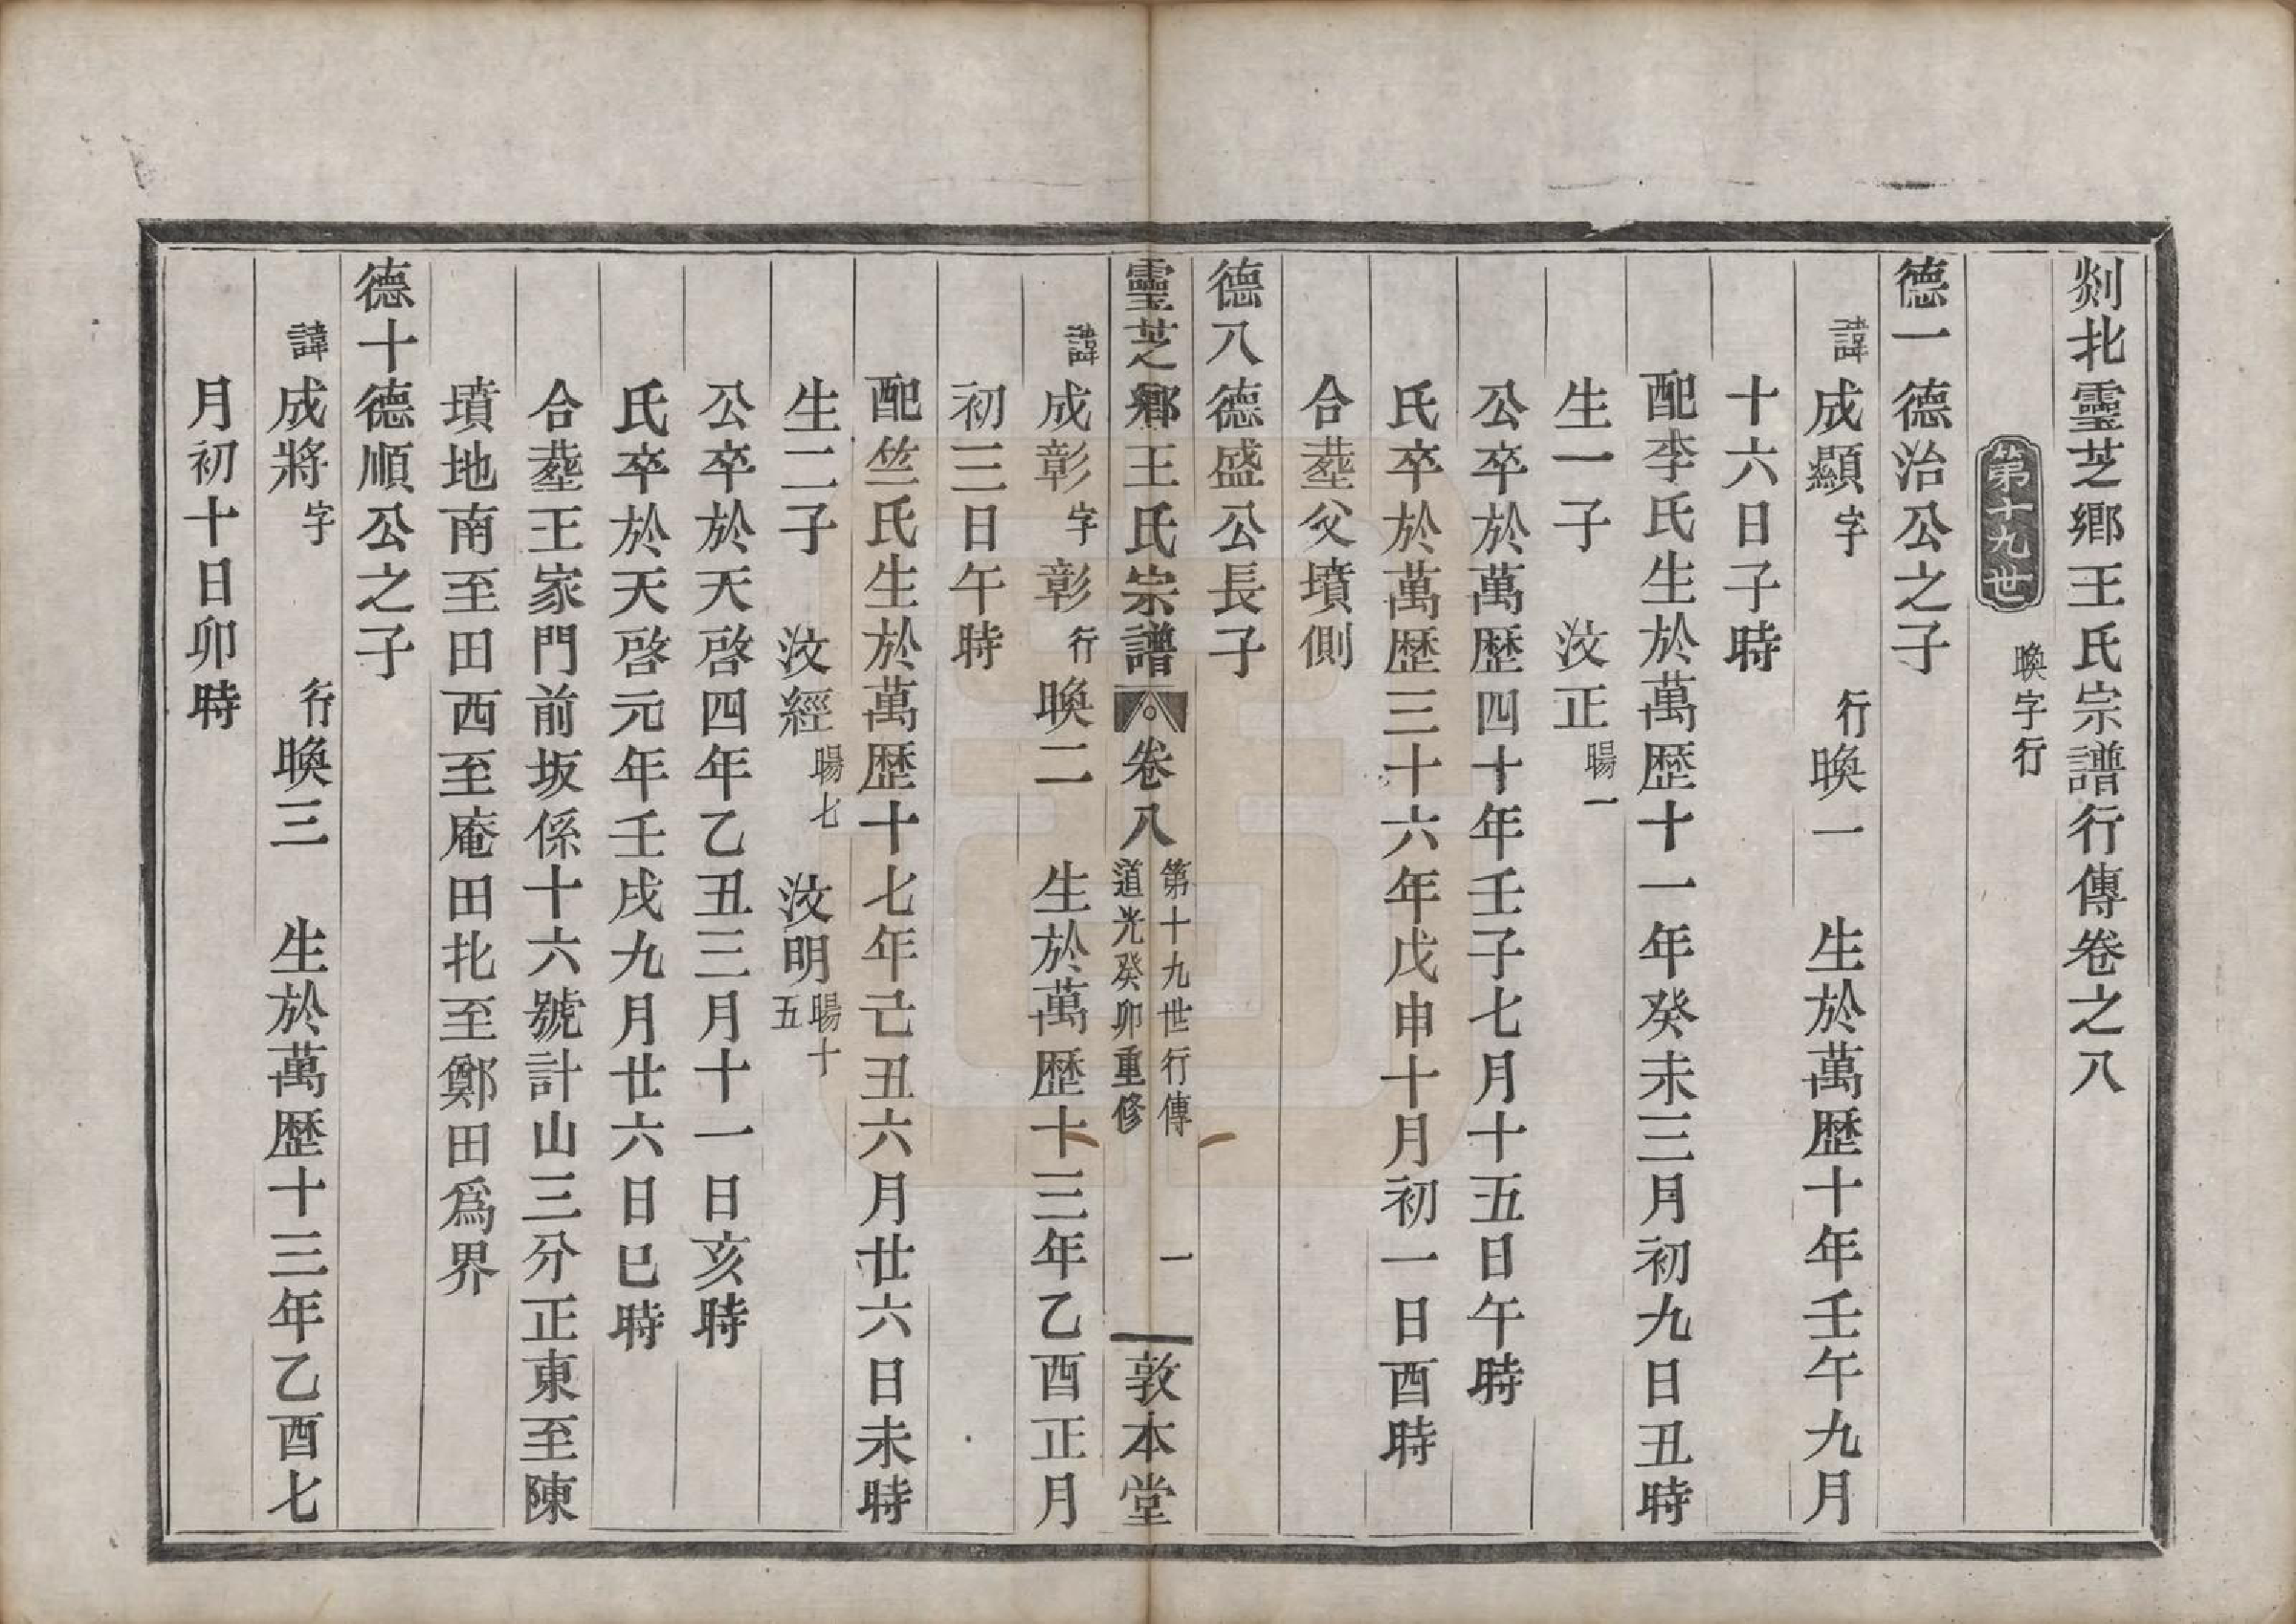 剡北靈芝鄉王氏宗譜行傳卷之八
第十九世 㬇字行
德一德治公之子
諱成顯字 行㬇一 生於萬歷十年壬午九月
十六日子時
配李氏生於萬歷十一年癸未三月初九日丑時
生一子 汶正暘一
公卒於萬歷四十年壬子七月十五日午時
氏卒於萬歷三十六年戊申十月初一日酉時
合塟父墳側
德八德盛公長子
靈芝鄉王氏宗譜 卷八 第十九世行傳 道光癸卯重修 一 敦本堂
諱成彰字彰行㬇二 生於萬歷十三年乙酉正月
初三日午時
配竺氏生於萬歷十七年己丑六月廿六日未時
生二子 汶經暘七 汶明暘十五
公卒於天啓四年乙丑三月十一日亥時
氏卒於天啓元年壬戌九月廿六日巳時
合塟王家門前坂係十六號計山三分正東至陳
墳地南至田西至庵田北至鄭田爲界
德十德順公之子
諱成將字 行㬇三 生於萬歷十三年乙酉七
月初十日卯時